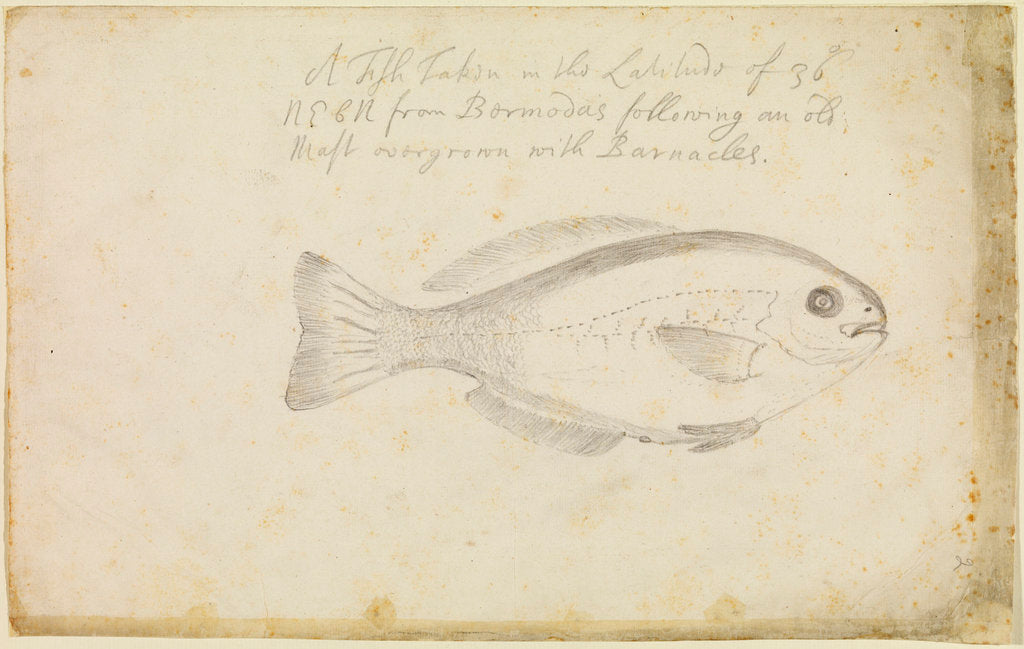 A Fish Taken in the Latitude of 36°
NEbN from Bermodas following an old
Mast overgrown with Barnacles.